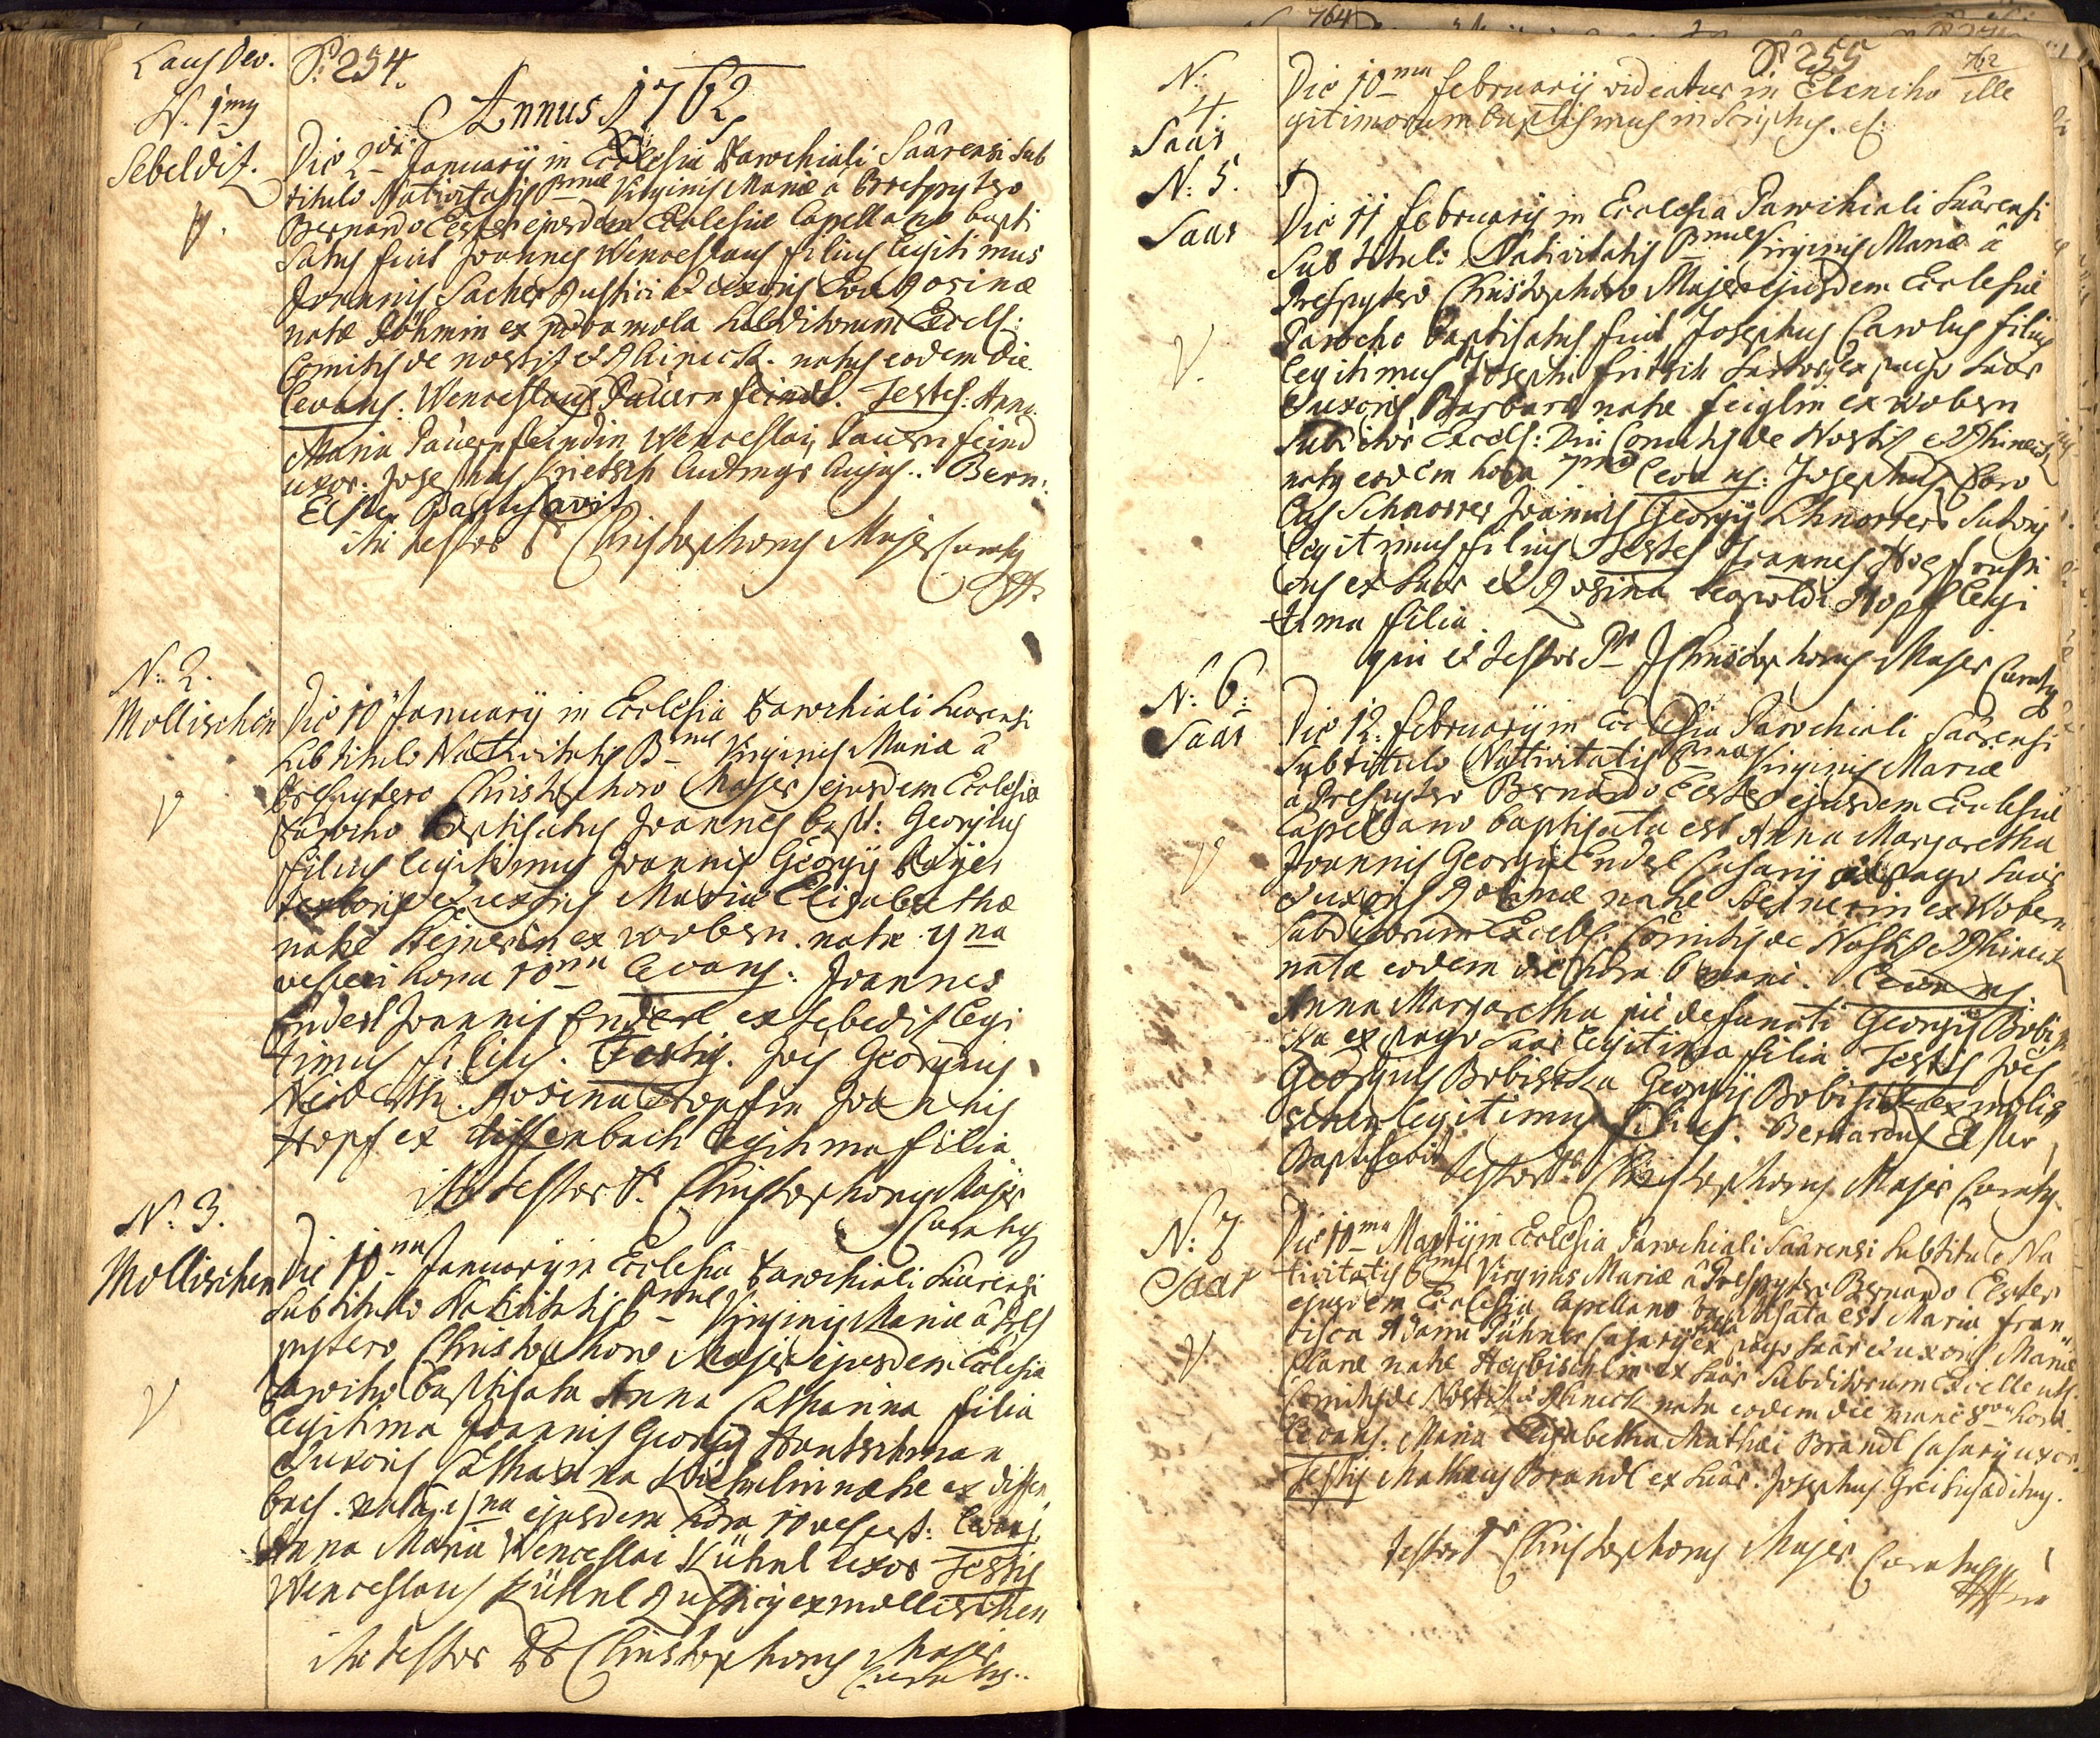 Laus Deo.
P: 254.
Annus 1762
N. 1mus
Sebeldit.
V.
Die 2da Januarij in Ecclesia Parochiali Saarensi sub
titulo Nativitatis Bmae Virginis Mariae à Presbytero
Bernardo Elster ejusdem Ecclesiae Capellano bapti
satus fuit Joannes Wenceslaus filius legitimus
Joannis Sacher Rustici et uxoris Evae Rosinae
natae Böhmin ex nova mola subditorum Excells:
Comitis de Nostitz et Rhineck. natus eodem Die.
Levans: Wenceslaus Pauernfeindl. Testes: Anna
Maria Pauernfeindin Wenceslai Pauernfeind
uxor. Josephus Ludimgr hujus.. Bern:
Elster Baptisavit
ita testor Pr Christophorus Majer Curatus
N: 2.
Mollischen
V
Die 10 Januarij in Ecclesia Parochiali Saarensi
sub titulo Nativitatis Bmae Virginis Mariae à
Presbytero Christophoro Majer ejusdem Ecclesiae
Parocho baptisatus Joannes bapt: Georgius
filius legitimus Joannis Georgij
textoris et uxoris Maria Elisabethae
natae Heinerin ex Wobern. natus 9na
vesperi hora 10ma Levans: Joannes
Enderl Joannis Enderl ex Sebedis legi
timus filius. Testis. Joes Georgius
Neiderth. Rosina Hopfin Joannis
Hopf ex Tiffenbach legitima filia
ita testor Pr. Christophorus Majer
Curatus
N: 3.
Mollischen
V
Die 10ma Januarij in Ecclesia Parochiali Saarensi
sub titulo Nativitatis Bmae Virginis Mariae à Pres
pytero Christophoro Majer ejusdem Ecclesiae
Parocho baptisata Anna Catharina filia
legitima Joannis Georgij Hantschman
et uxoris Catharina natae ex Diffen
bach. nata 9na ejusdem hora 10 vespert: Levans.
Anna Maria Wenceslai Kühnl uxor Testis
Wenceslaus Kühnl Rusticus ex Mollischen
ita testor Pr Christophorus Majer
Curatus..
P 255
762
N:
4.
Saar
Die 10ma Februarij videatur in Elencho ille
gitimorum baptismus inscriptus.
N: 5.
Saar
V.
Die 11 Februarij in Ecclesia Parochiali Saarensi
sub tituli Nativitatis Bmae Virginis Mariae à
Prespytero Christophoro Majer ejusdem Ecclesiae
Parocho baptisatus fuit Josephus Carolus filius
legitimus Josephi Fritsch sartoris ex pago Saar
et uxoris Barbara natae Feiglin ex Wobern
subditor Excells: Dni Comitis de Nostitz et Rhineck
natus eodem hora 7ma Levans: Josephus Caro
lus Schnorrer Joannis Georgij Schnorrer Sutoris
legitimus filius Testes Joannes Hopf rusti
cus ex Saar et Rosina Leopoldi Hopf legi
tima filia.
qui et testor Pr Christophorus Majer Curatus
N: 6:
Saar
V
Die 12. Februarij in Ecclesia Parochiali Saarensi
sub titulo Nativitatis Bmae Virginis Mariae
à Prespytero Bernardo Elster ejusdem Ecclesiae
Capellano baptisata est Anna Margaretha
Joannis Georgij Enderl Casarij ex pago Saar
et uxoris Rosinae natae Heinerin ex Wobern
subditorum Excells. Comitis de Nostitz et Rhineck
nata eodem die hora 6 mani. Levans.
Anna Margaretha pie defuncti Georgij Bobis
ka ex pago Saar legitima filia. Testis Joes
Georgius Bobischka Georgij Bobischka ex molis
schen legitimus filius. Bernardus Elster
Baptisavit
testor Pr Christophorus Majer Curatus.
N: 7
Saar
V
Die 10ma Martij in Ecclesia Parochiali Saarensi sub titulo Na
tivitatis Bmae Virginis Mariae à Prespytero Bernardo Elster
ejusdem Ecclesiae Capellano baptisata est Maria Fran
cisca Adami Casarij filia ex pago Saar et uxoris Mariae
natae ex Saar subditorum Excellents.
Comitis de Nostitz et Rhineck nata eodem die mane 8va hora
Levans: Maria Elisabetha Mathaei Brandl Casarij uxor.
Testis Matheus Brandl ex Saar. Josephus
testor Pr Christophorus Majer Curatus